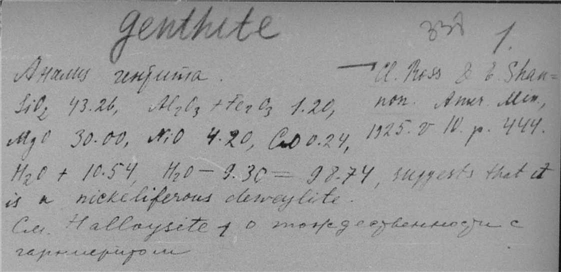 genthite
338 1.
Анализ гентита. — Cl. Ross & E. Shan=
SiO2 43.26, Al2O3 + Fe2O3 1.20, non. Amer. Min,
MgO 30.00, NiO 4.20, CaO 0.24, 1925. v 10. p. 444.
H2O + 10.54, H2O - 9.30 = 98.74, suggests that it
is a nickeliferous deweylite.
См. Halloysite, о тождественности с
гарниеритом